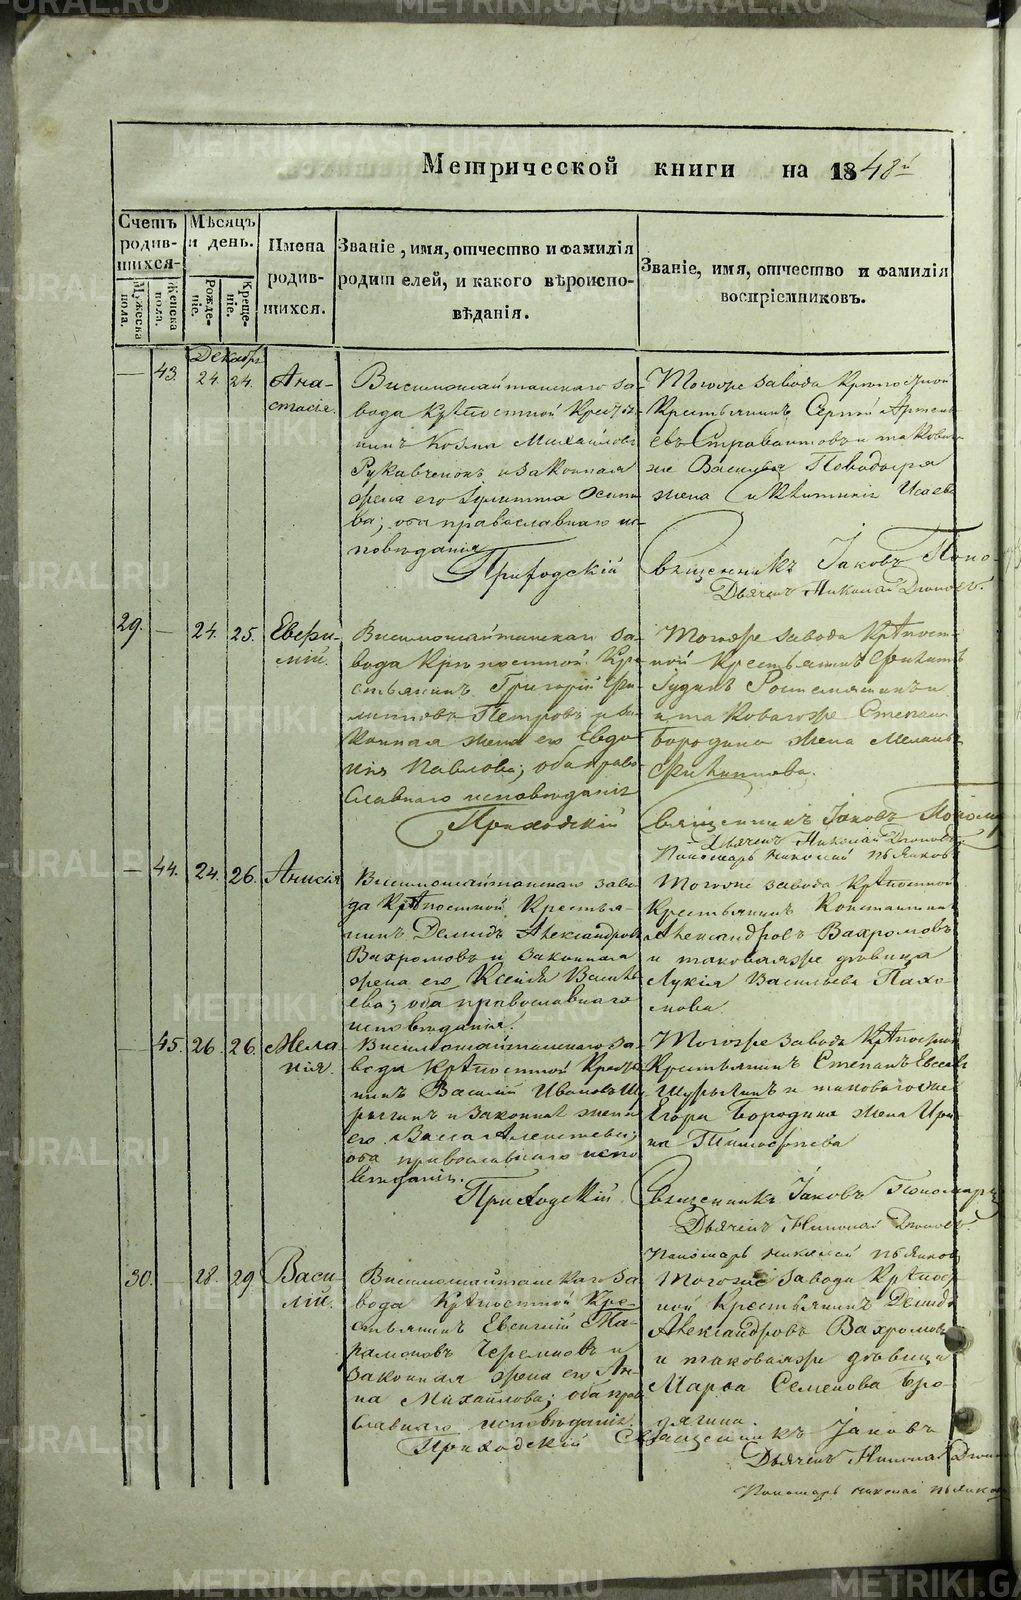 METRIKI.GASO-URAL.RU
Метрической книги на 1848й
Счетъ родив-шихся-
Мужеска пола.
Женска пола.
Мѣсяцъ и день.
Рожде-ніе.
Креще-ніе.
Имена родив-шихся.
Званіе, имя, отчество и фамилія
родителей, и какого вѣроиспо-
вѣданія.
Званіе, имя, отчество и фамилія
воспріемниковъ.
Декабрь
43. 24. 24. Ана-
стасія.
Висимошайтанскаго за-
вода крѣпостной крестья-
нинъ Козма Михайловъ
и законная
жена его Осипо-
ва; оба православнаго ис-
повѣданія
Тогоже завода крѣпостной
крестьянинъ Сергій Артемь-
евъ и таковаго
же Василья Поводыря
жена Исаева
Приходскій Священникъ Іаковъ Поно-
Дьячекъ Николай
29. — 24. 25. Евгра-
Висимошайтанскаго за-
вода крѣпостной кре-
стьянинъ Григорій Фи-
липповъ Петровъ и за-
конная жена его Евдо-
кія Павлова; оба право-
славнаго исповѣданія
Тогоже завода крѣпост-
ной крестьянинъ Филипъ
и таковагоже Степана
Бородина жена Меланья
Филиппова.
Приходскій Священникъ Іаковъ Пономар
Дьячекъ Николай
Пономарь Николай Пьянков
— 44. 24. 26. Анисія
Висимошайтанскаго заво-
да крѣпостной крестья-
нинъ Демидъ Александровъ
Вахромовъ и законная
жена его Ксенія Василь-
ева; оба православнаго
исповѣданія.
Тогоже завода крѣпостной
крестьянинъ Константинъ
Александровъ Вахромовъ
и таковаяже дѣвица
Лукія Васильева Пахо-
мова.
45. 26. 26. Мела-
нія.
Висимошайтанскаго за-
вода крѣпостной кресть-
нинъ Василій Ивановъ Шу-
рыгинъ и законная жена
его Васса Алексѣева;
оба православнаго испо-
вѣданія.
Тогоже завода крѣпостной
крестьянинъ Степанъ Евсеевъ
Шурыгинъ и таковагоже
Егора Бородина жена Ири-
на Тимофѣева
Приходскій Священникъ Іаковъ Пономар
Дьячекъ Николай
Пономарь Николай Пьянков
30. 28. 29 Васи-
лій.
Висимошайтанскаго за-
вода крѣпостной кре-
стьянинъ Евгеній Па-
рамоновъ Черемновъ и
законная жена его Ан-
на Михайлова; оба пра-
славнаго исповѣданія.
Тогоже завода крѣпост-
ной крестьянинъ Демидъ
Александровъ Вахромовъ
и таковаяже дѣвица
Марѳа Семенова Бро-
дягина.
Приходскій Священникъ Іаковъ
Дьячекъ Николай
Пономарь Николай Пьянков